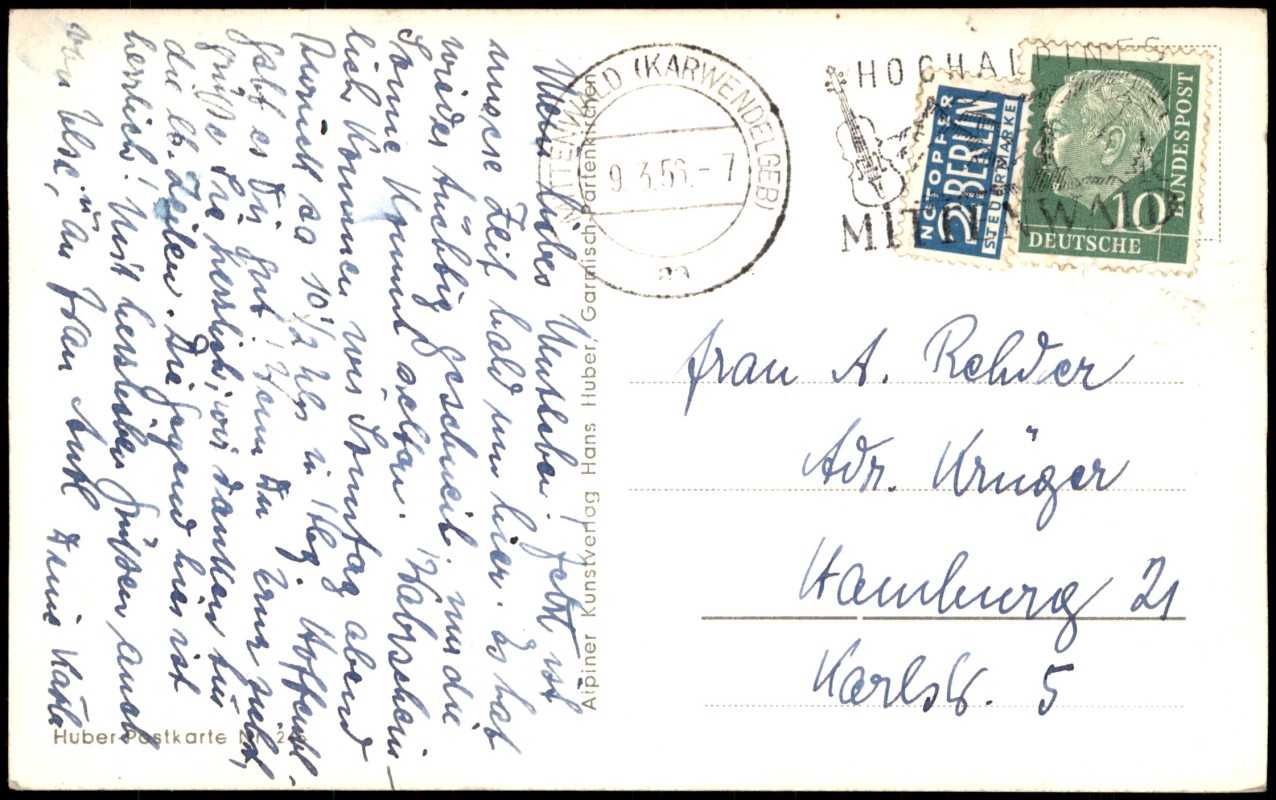 Mein liebes Mutschen! Jetzt ist
unsere Zeit bald um hier. Es hat
wieder tüchtig geschneit, nur die
Sonne kommt selten. Wahrschein-
lich kommen wir Sonntag abend
ca 10 1/2 Uhr in Hbg. Hoffentl.
geht es Dir gut! Wenn Du
grüße Sie herzlich, wir danken für
die lb. Zeilen. Die Gegend hier ist
herrlich! Mit herzlichen Grüßen auch
von Ilse, u. an Frau Deine Käthe
Huber-Postkarte Nr.
Alpiner Kunstverlag Hans Huber, Garmisch-Partenkirchen
MITTENWALD (KARWENDELGEB)
9.3.56.-7
aa
HOCHALPINES
MITTENWALD
NOTOPFER
2 BERLIN
STEUERMARKE
10
DEUTSCHE
BUNDESPOST
Frau A. Rehder
Adr. Krüger
Hamburg 21
Karlstr. 5